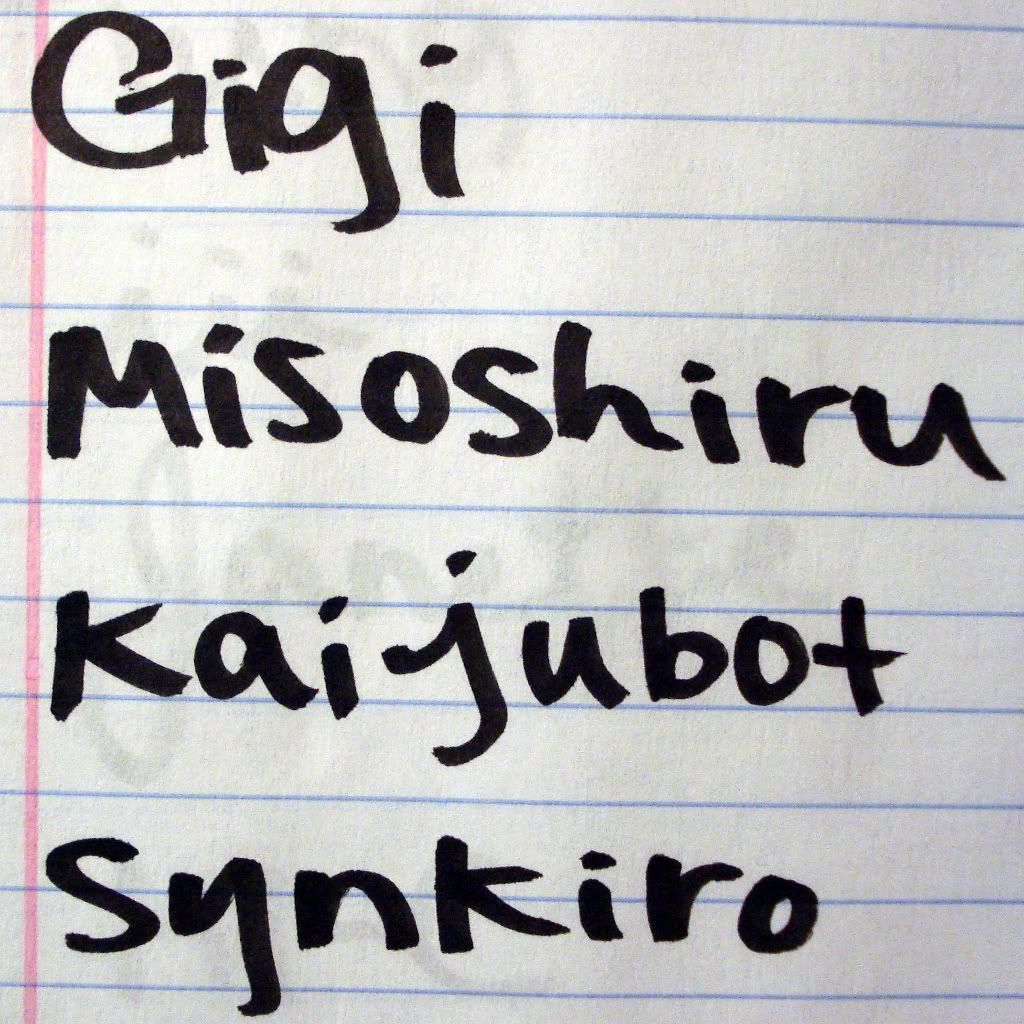 Gigi
Misoshiru
Kaijubot
Synkiro